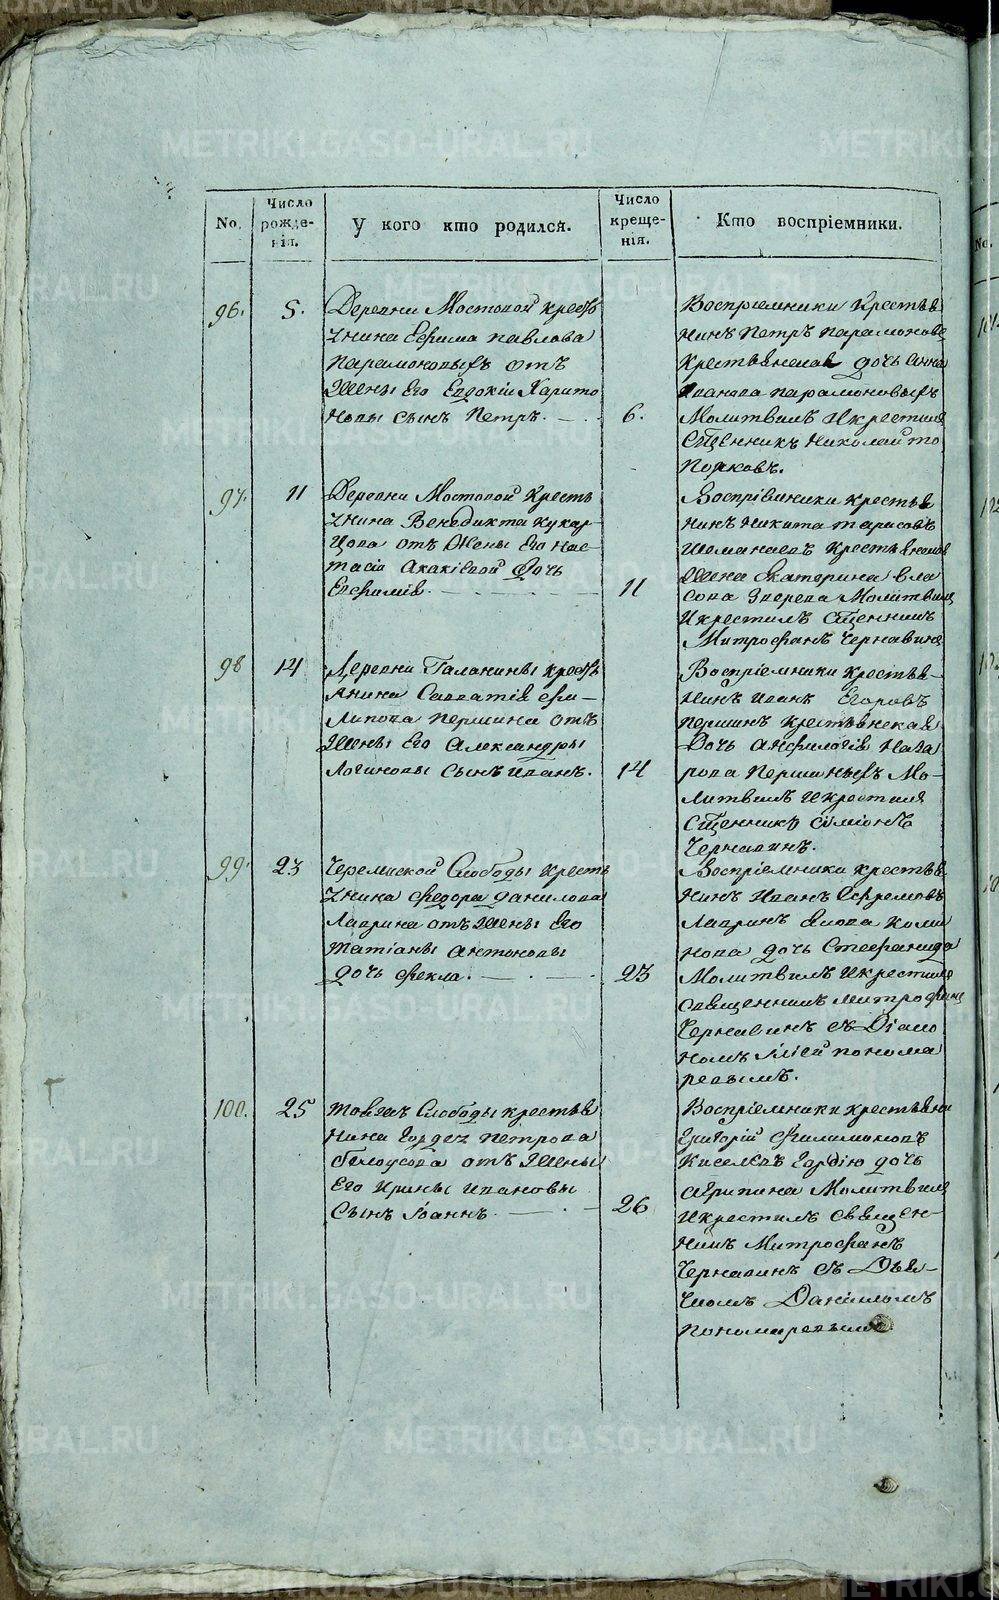 No.
Число рожде-нія.
У кого кто родился.
Число креще-нія.
Кто воспріемники.
96.
5.
Деревни Мостовой Кресть
янина Ефима павлова
парамоновыхъ отъ
Жены Его Евдокіи Харито
новы Сынъ Петръ.
6.
Воспріемники Крестья
нинъ Петръ парамоновъ
крестьянская дочь Анна
Иванова парамоновыхъ
Молитвилъ Икрестилъ
Сщенникъ Николай то
порковъ.
97.
11
Деревни Мостовой Кресть
янина Венедикта кукар
цова отъ Жены Его Нас
тасіи Акакіевой Дочь
Евфимія.
11
Воспріемники крестья
нинъ Никита тарасовъ
крестьянская
Жена Екатерина вла
сова Зверева Молитвилъ
Икрестилъ Сщенникъ
Митрофанъ Чернавинъ
98
14
Деревни Галанины кресть
янина Савватія фи-
липова першина отъ
Жены Его Александры
Логиновы Сынъ Иванъ.
14
Воспріемники крестья-
нинъ Иванъ Егоровъ
першинъ крестьянская
Дочь Анфилогія Наза
рова Першиныхъ Мо-
литвилъ Икрестилъ
Сщенникъ Симіонъ
Чернавинъ.
99.
23
Черемиской Слободы кресть
янина Федора данилова
Лаврина отъ Жены Его
татіаны Антоновы
дочь Фекла.
23
Воспріемники крестья
нинъ Иванъ Ефремовъ
Лавринъ Якова
нова дочь Стефанида
Молитвилъ Икрестилъ
Священникъ Митрофанъ
Чернавинъ съ Діако
номъ понома
ревымъ.
100.
25
тояжъ Слободы крестья
нина Гордея петрова
белоусова отъ Жены
Его Ирины Ивановы
Сынъ Іоаннъ.
26
Воспріемники крестьяни
Григорій Филимоновъ
Киселевъ дочь
Агрипина Молитвилъ
Икрестилъ Священ-
никъ Митрофанъ
Чернавинъ съ Дья-
чкомъ Даніиломъ
пономаревымъ.
METRIKI.GASO-URAL.RU